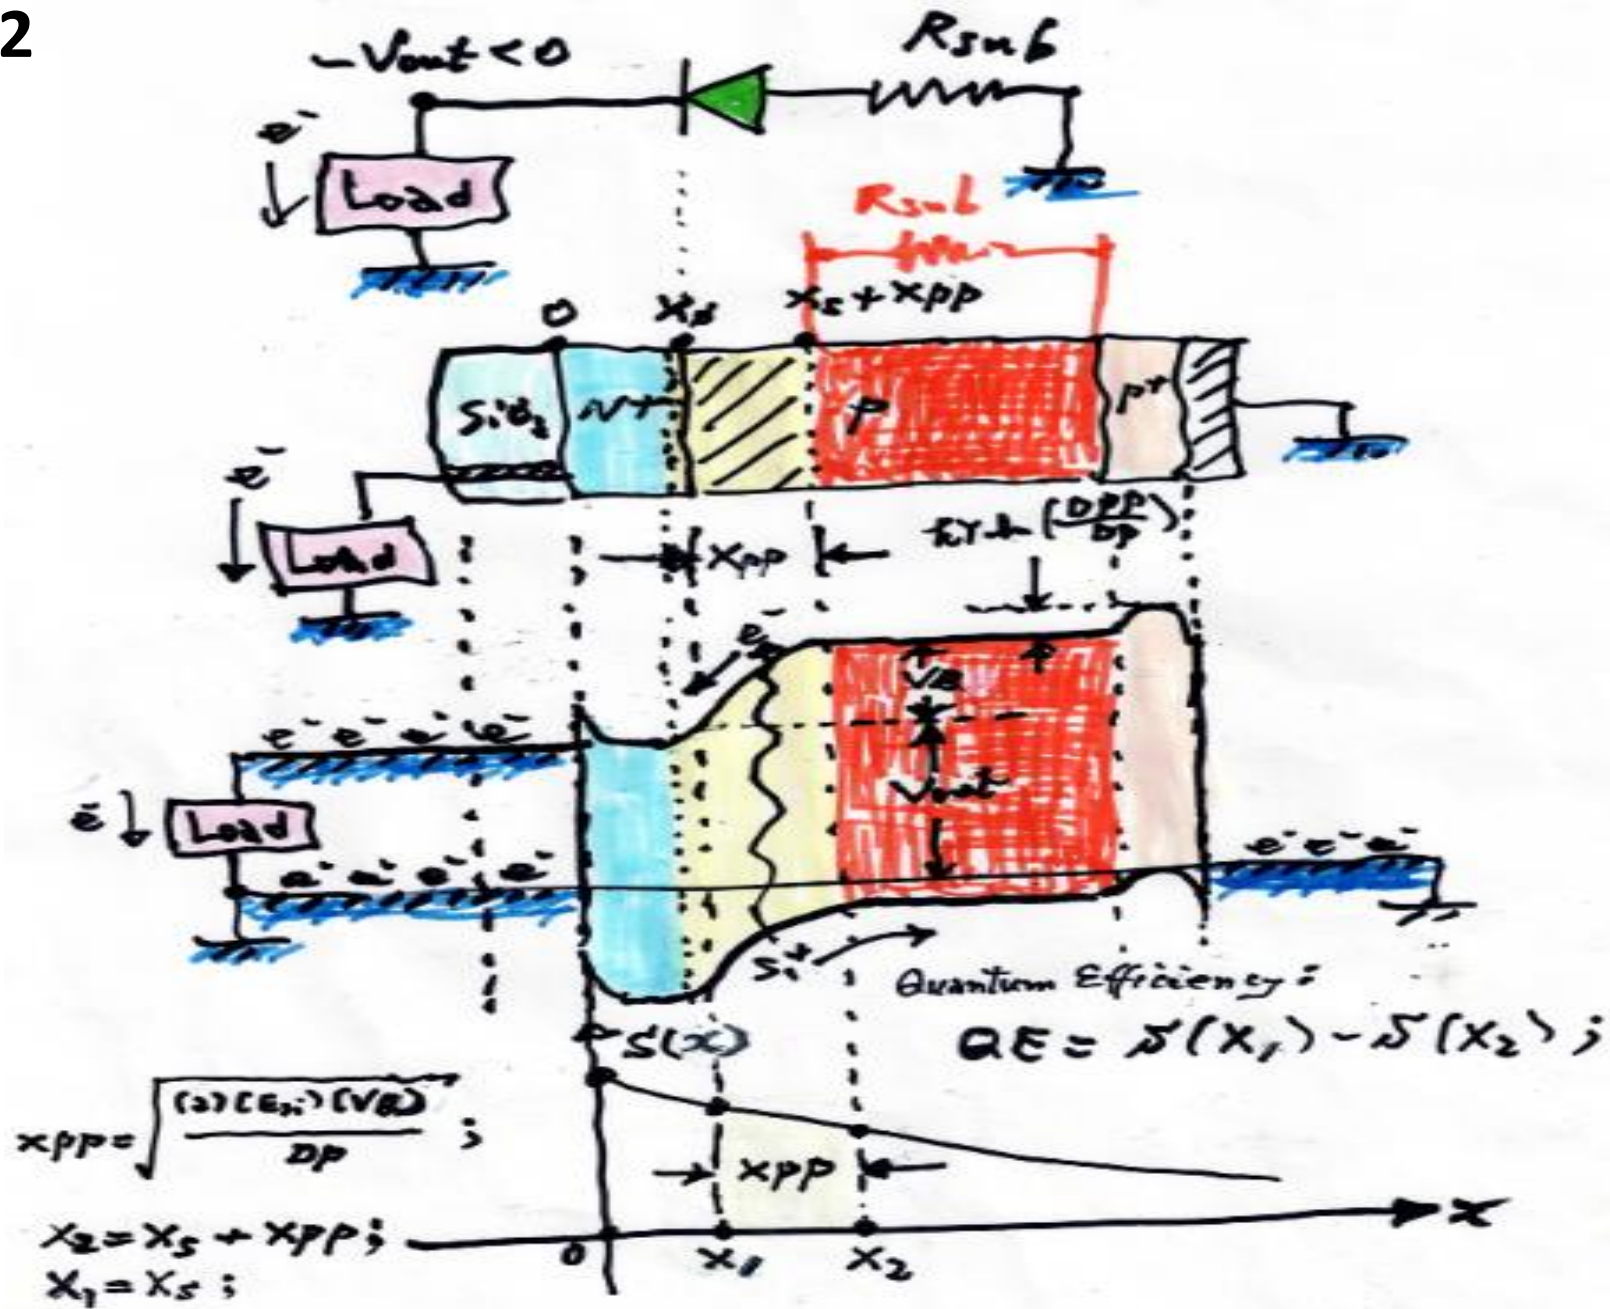 2
-Vout < 0
Rsub
e-
Load
Rsub
0
Xs
Xs + Xpp
SiO2
N+
P
P+
e-
Load
Xpp
kT ln (DPP/DP)
e-
VB
e- e- e- e-
Vout
e-
Load
e- e- e- e-
e- e- e-
Si+
Quantum Efficiency:
S(x)
QE = S(X1) - S(X2) ;
xpp = √((2)(Esi)(VB)/DP) ;
xpp
X
X2 = Xs + xpp ;
0
X1
X2
X1 = Xs ;